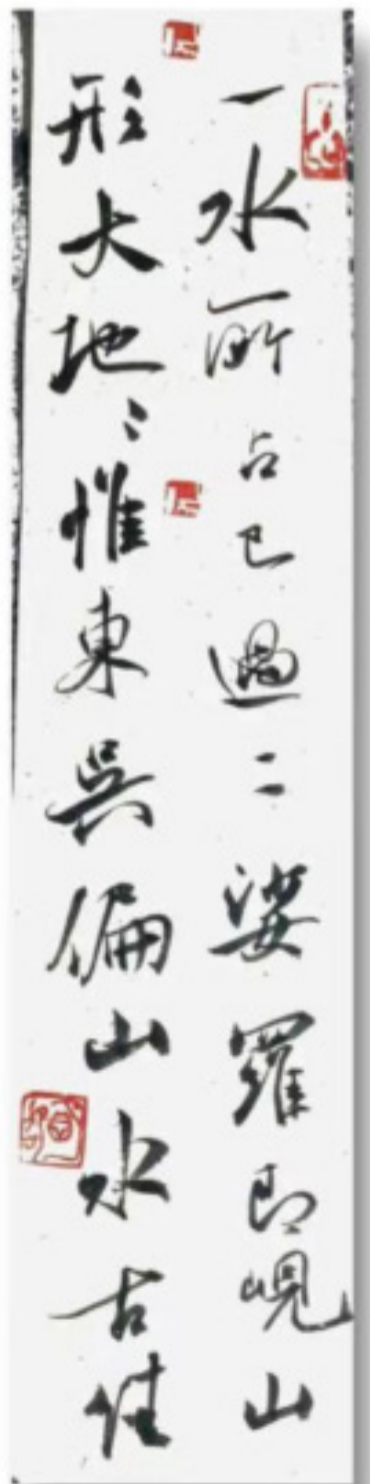 一水所占已過二婆羅即峴山
形大地〻惟東吳偏山水古佳